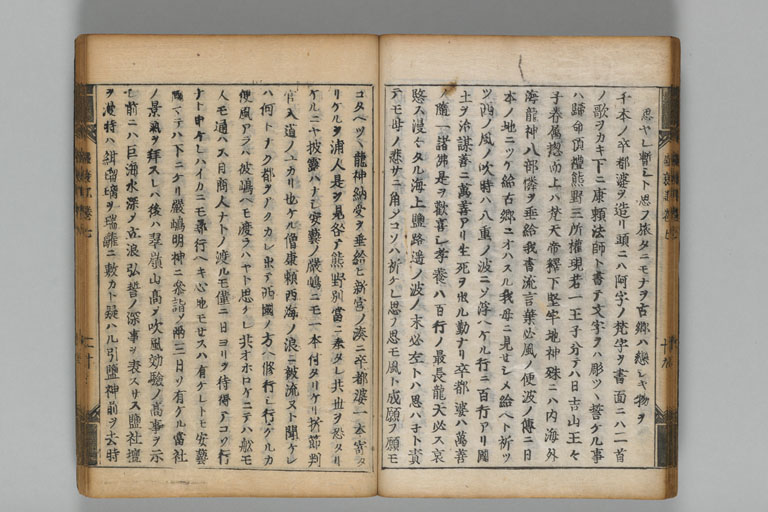 思ヤレ暫シト思フ旅タニモナヲ古郷ハ戀シキ物ヲ
千本ノ卒都婆ヲ造リ頭ニハ阿字ノ梵字ヲ書面ニハ二首
ノ歌ヲカキ下ニ康頼法師ト書テ文字ヲハ彫ツヽ誓ケル事
ハ歸命頂禮熊野三所權現若一王子分テハ日吉山王々
子眷属惣而上ハ梵天帝釋下堅牢地神殊ニハ内海外
海龍神八部憐ヲ垂給我書流言葉必風ノ便波ノ傳ニ日
本ノ地ニツケ給古郷ニオハスル我母ニ見セシメ給ヘト祈ツ
ツ西ノ風ノ吹時ハ八重ノ波ニソ浮ヘケル行ニ百行アリ國
土ヲ治謀善ニ萬善アリ生死ヲ出ル勤ナリ卒都婆ハ萬善
ノ随一諸佛是ヲ歡喜シ孝養ハ百行ノ最長龍天必ス哀
愍ス漫々タル海上鹽路遥ノ波ノ末必左トハ思ハ子ト責
テモ母ノ悲サニ角ソコソハ祈ケレ思フ思モ風ト成願ヲ願モ
コタヘツヽ龍神納受ヲ垂給ヒ新宮ノ湊ニ卒都婆一本寄タ
リケルヲ浦人是ヲ見咎テ熊野別當ニ奉タレ共世ヲ恐タリ
ケルニヤ披露ハナシ安藝ノ嚴嶋ニモ一本付タリケリ折節判
官入道ノユカリ也ケル僧康頼西海ノ浪ニ被流ヌト聞ケレ
ハ何トナク都ヲアクカレ出テ西國ノ方ヘ修行シ行ケルカ
便風アラハ彼嶋ヘモ渡ラハヤト思ケレ共オホロケニテハ舩モ
人モ通ハス自商人ナトノ渡ルモ僅ニ日ヨリヲ待得テコソ行
ナト申ケレハイカニモ尋行ヘキ心地モセスハ有ケレトモ安藝
國マテハ下ニケリ嚴嶋明神ニ參詣シ兩三日ソ有ケル當社
ノ景氣ヲ拜スレハ後ハ翠嶺山高ク吹風効驗ノ高事ヲ示
シ前ニハ巨海水深ク立浪弘誓ノ深事ヲ表スサス鹽社壇
ヲ浸時ハ紺瑠璃ヲ瑞籬ニ敷カト疑ハル引鹽神前ヲ去時